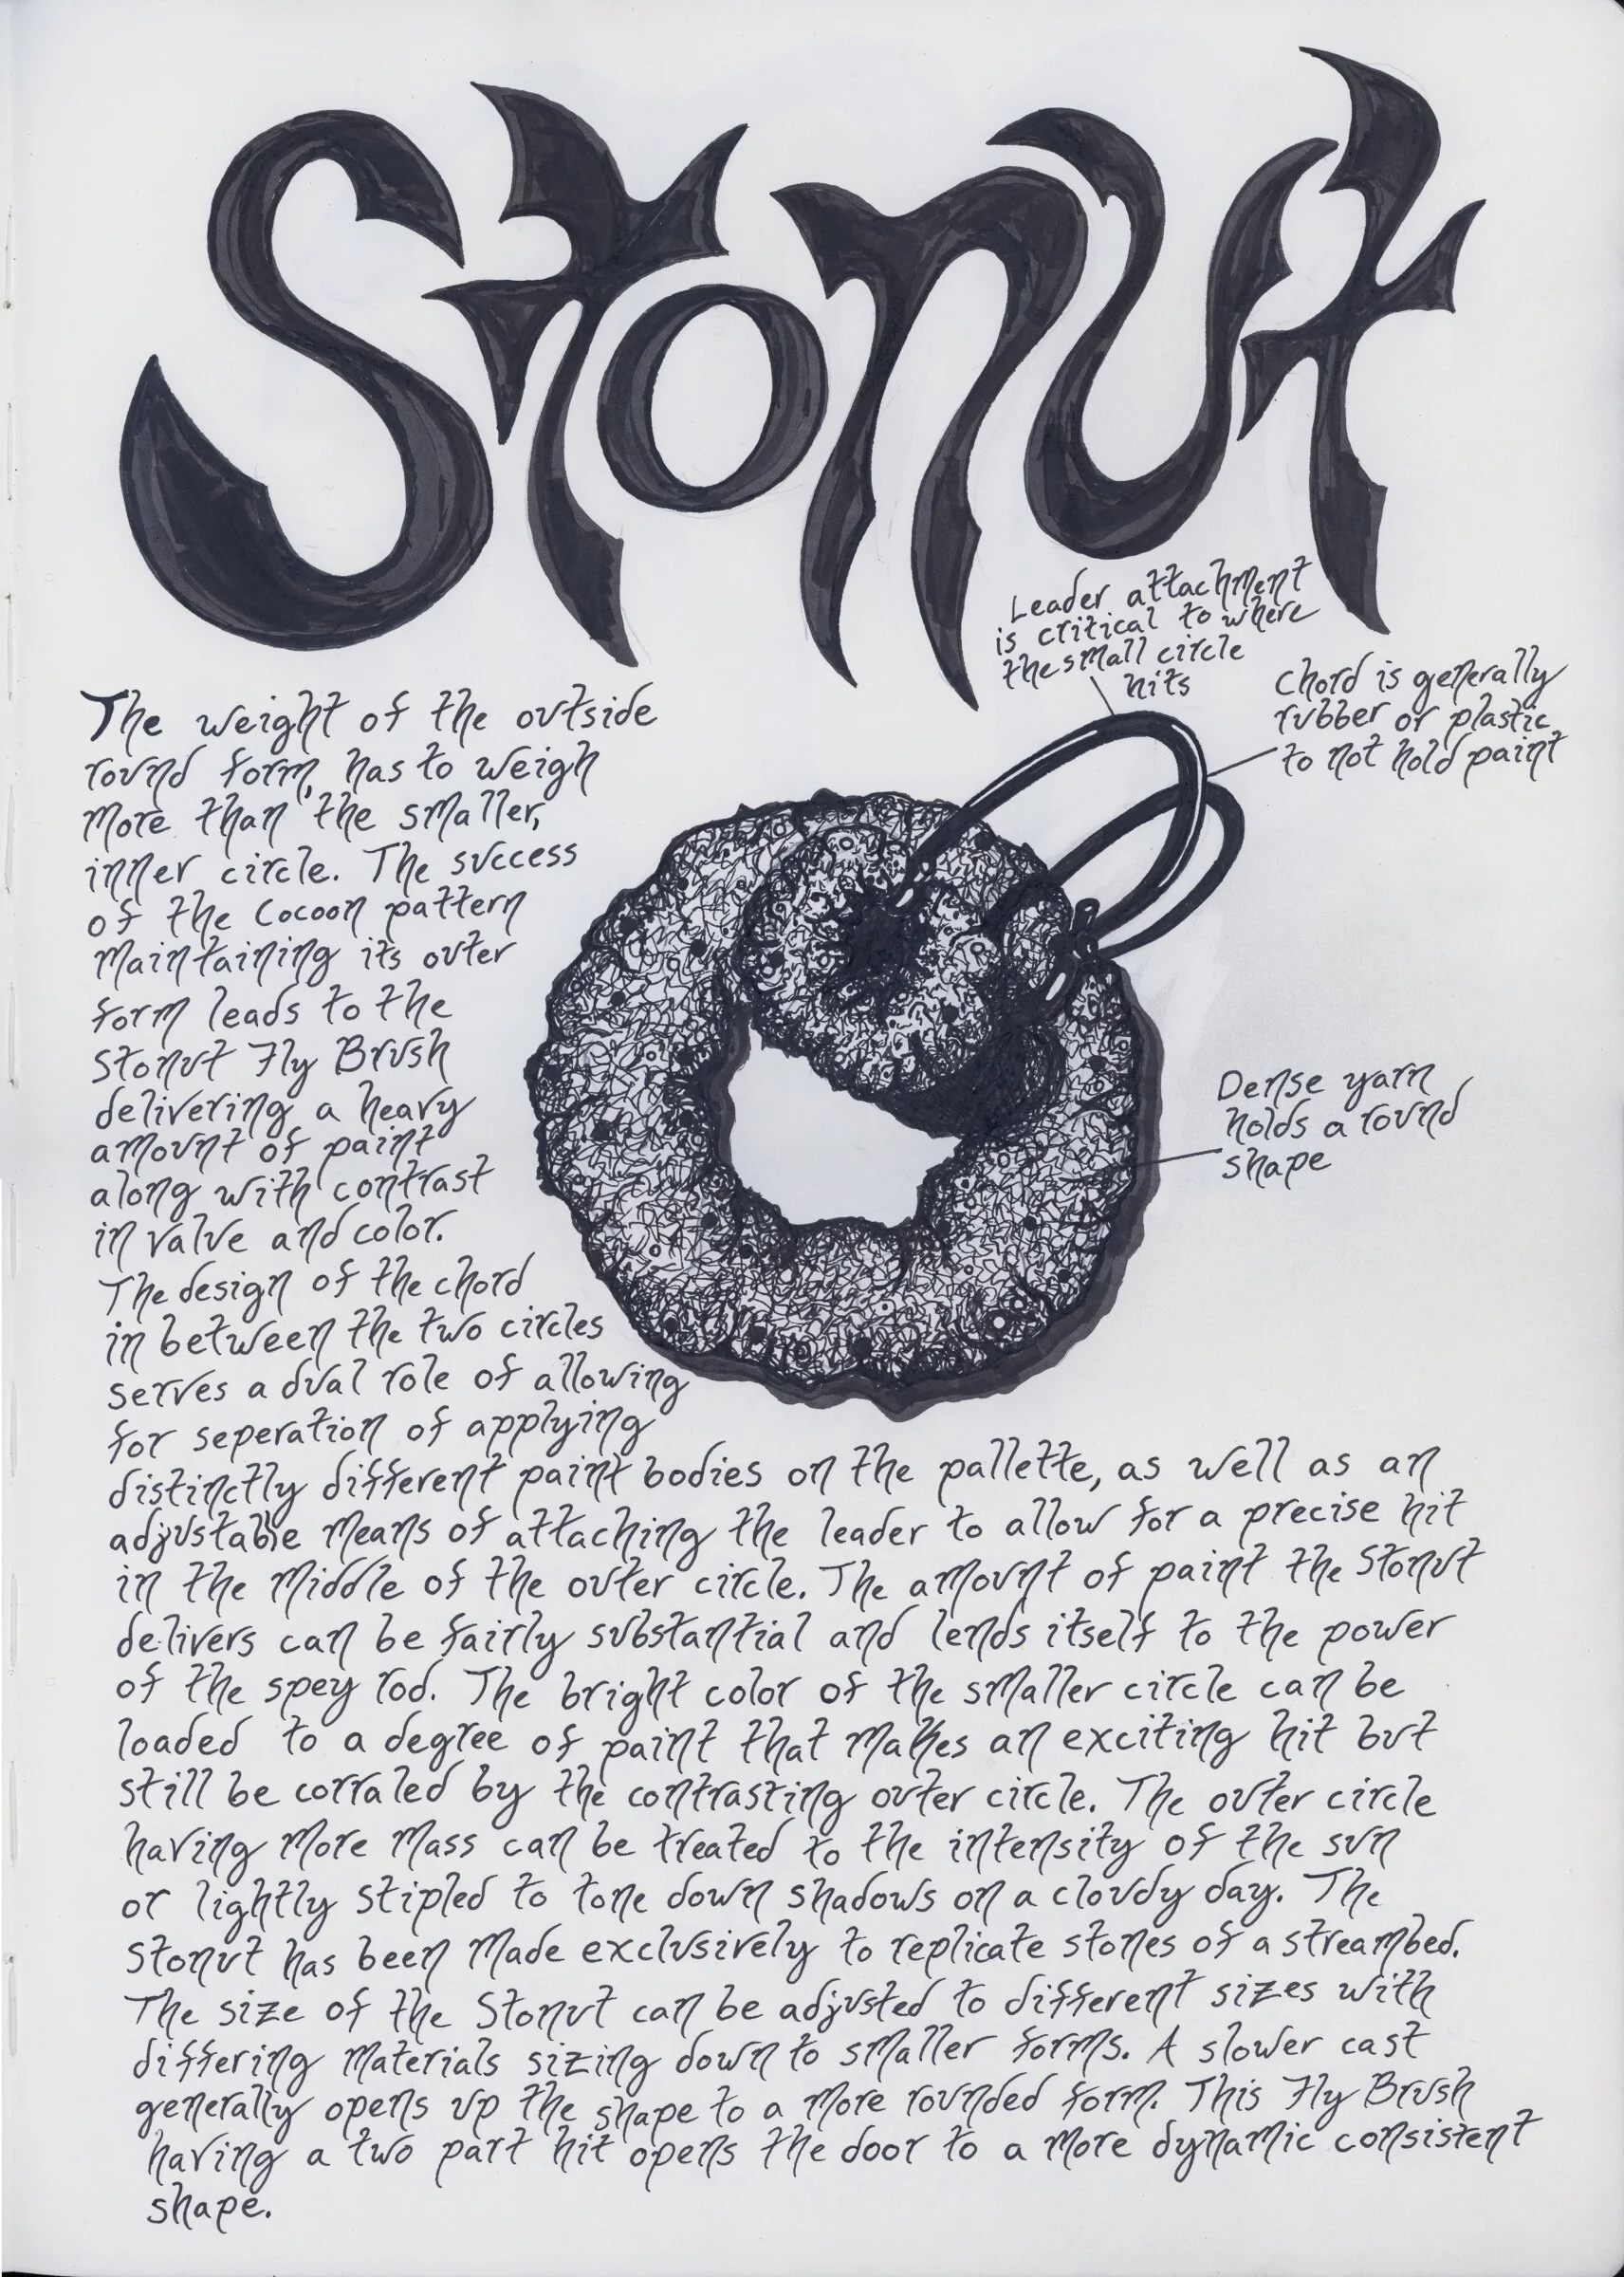 Stonut
Leader attachment
is critical to where
the small circle
hits
Chord is generally
rubber or plastic
to not hold paint
The weight of the outside
round form, has to weigh
more than the smaller,
inner circle. The success
of the Cocoon pattern
maintaining its outer
form leads to the
Stonut Fly Brush
delivering a heavy
amount of paint
along with contrast
in value and color.
Dense yarn
holds a round
shape
The design of the chord
in between the two circles
serves a dual role of allowing
for seperation of applying
distinctly different paint bodies on the pallette, as well as an
adjustable means of attaching the leader to allow for a precise hit
in the middle of the outer circle. The amount of paint the Stonut
delivers can be fairly substantial and lends itself to the power
of the spey rod. The bright color of the smaller circle can be
loaded to a degree of paint that makes an exciting hit but
still be corraled by the contrasting outer circle. The outer circle
having more mass can be treated to the intensity of the sun
or lightly stipled to tone down shadows on a cloudy day. The
Stonut has been made exclusively to replicate stones of a streambed.
The size of the Stonut can be adjusted to different sizes with
differing materials sizing down to smaller forms. A slower cast
generally opens up the shape to a more rounded form. This Fly Brush
having a two part hit opens the door to a more dynamic consistent
shape.